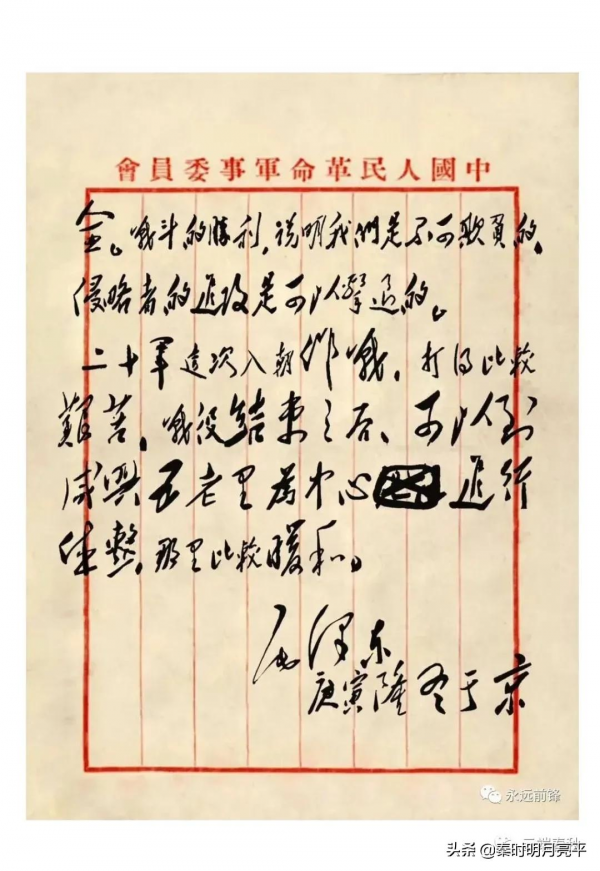 中國人民革命軍事委員會
戰斗的勝利,说明我們是不可欺負的,
侵略者的進攻是可以擊退的。
二十軍這次入朝作戰,打得比較
艱苦。戰役結束之后、可以到
咸興五老里為中心進行
休整,那里比較暖和。
毛泽东
庚寅隆冬于京
永远前锋
头条 @秦时明月亮平